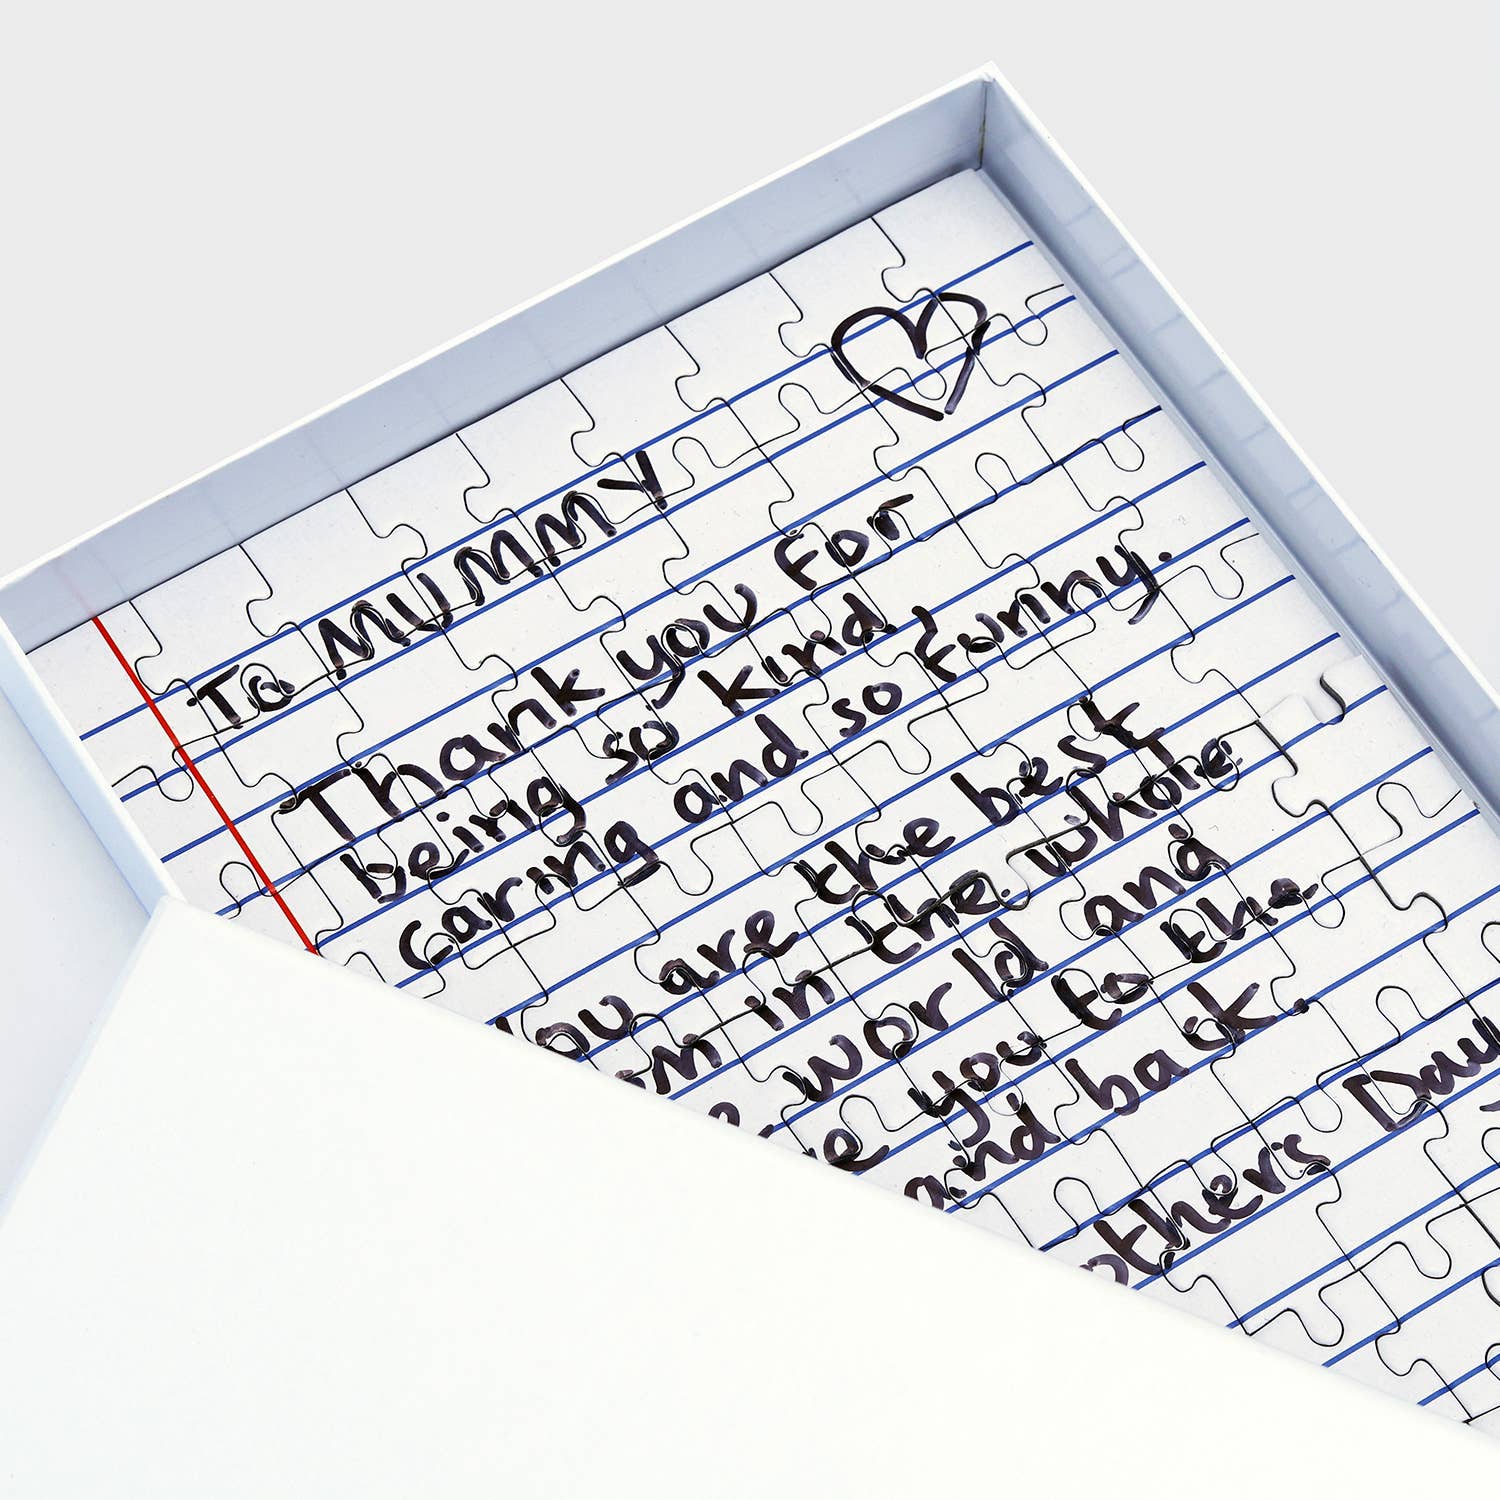 To MUMMY
Thank you for
being so kind
caring and so funny.
You are the best
in the whole
world and
you to the
and back
others Day